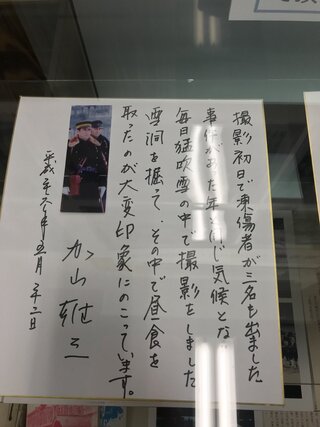 撮影初日で凍傷者が三名も出ました
事件があった年と同じ気候となり
毎日猛吹雪の中で撮影をしました
雪洞を掘って、その中で昼食を
取ったのが大変印象にのこっています。
加山雄三